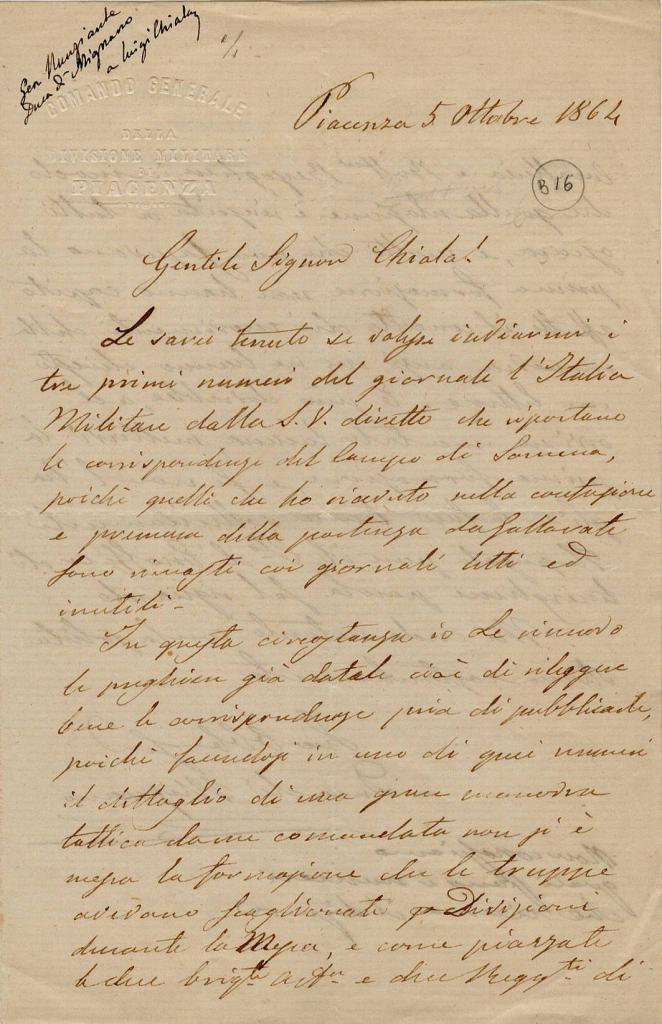 Gen Nunziante
Duca di Mignano
a Luigi Chiala
COMANDO GENERALE
DELLA
DIVISIONE MILITARE
DI
PIACENZA
Piacenza 5 Ottobre 1864
B 16
Gentile Signor Chiala!
Le sarei tenuto se volesse inviarmi i
tre primi numeri del giornale l'Italia
Militare dalla S. V. diretto che riportano
le corrispondenze del Campo di Somma,
poichè quelli che ho ricevuto nella confusione
e premura della partenza da Gallarate
sono rimasti coi giornali letti ed
inutili -
In questa circostanza io Le rinnovo
le preghiere già datele cioè di rileggere
bene le corrispondenze pria di pubblicarle,
poichè facendosi in uno di quei numeri
il dettaglio di una gran manovra
tattica da me comandata non si è
messa la formazione che le truppe
avevano scaglionate p Divisioni
durante la Messa, e come piazzate
le due brigte e due Reggti di